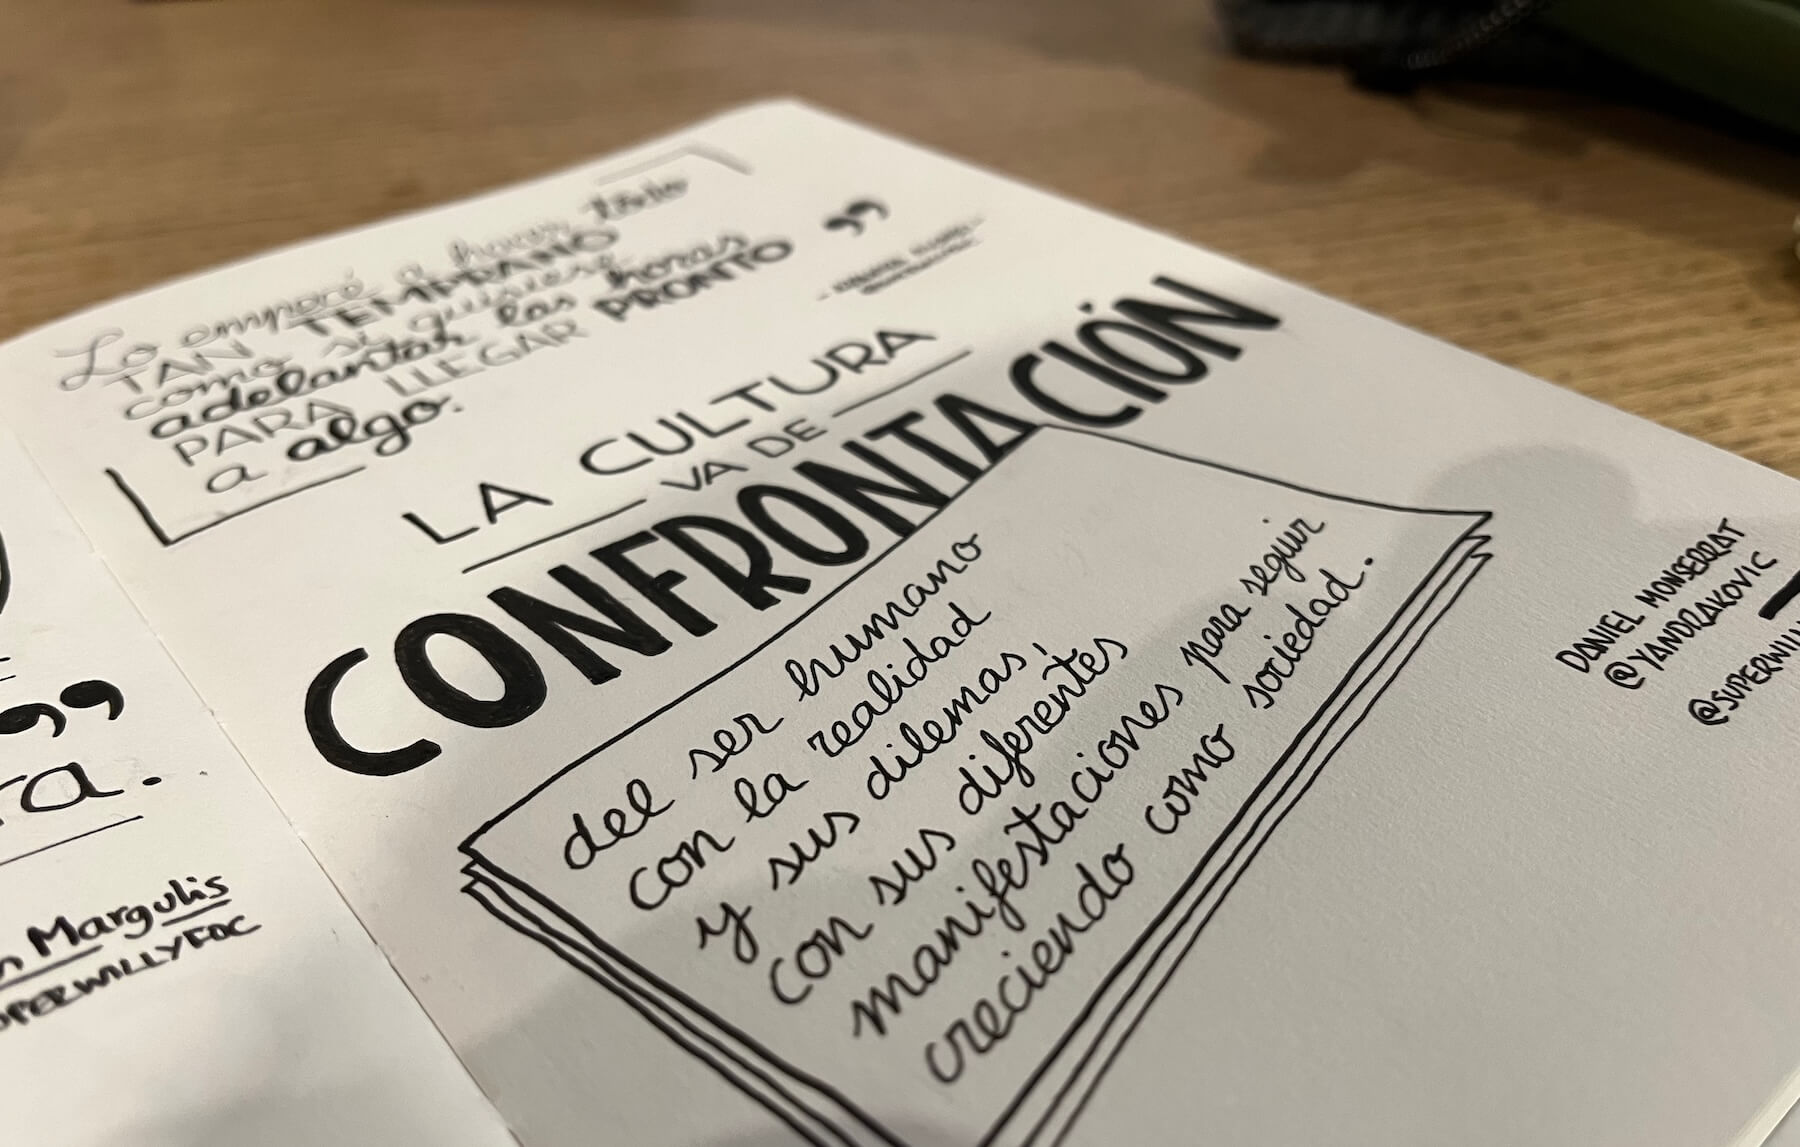 Lo empecé a hacer todo
TAN TEMPRANO
como si quisiera
adelantar las horas
PARA LLEGAR PRONTO
a algo.
”
LA CULTURA
VA DE
CONFRONTACIÓN
del ser humano
con la realidad
y sus dilemas,
con sus diferentes
manifestaciones para seguir
creciendo como sociedad.
DANIEL MONSERRAT
@YANDRAKOVIC
@SUPERWILL
”
ra.
n Margulis
UPERWILLYFOC